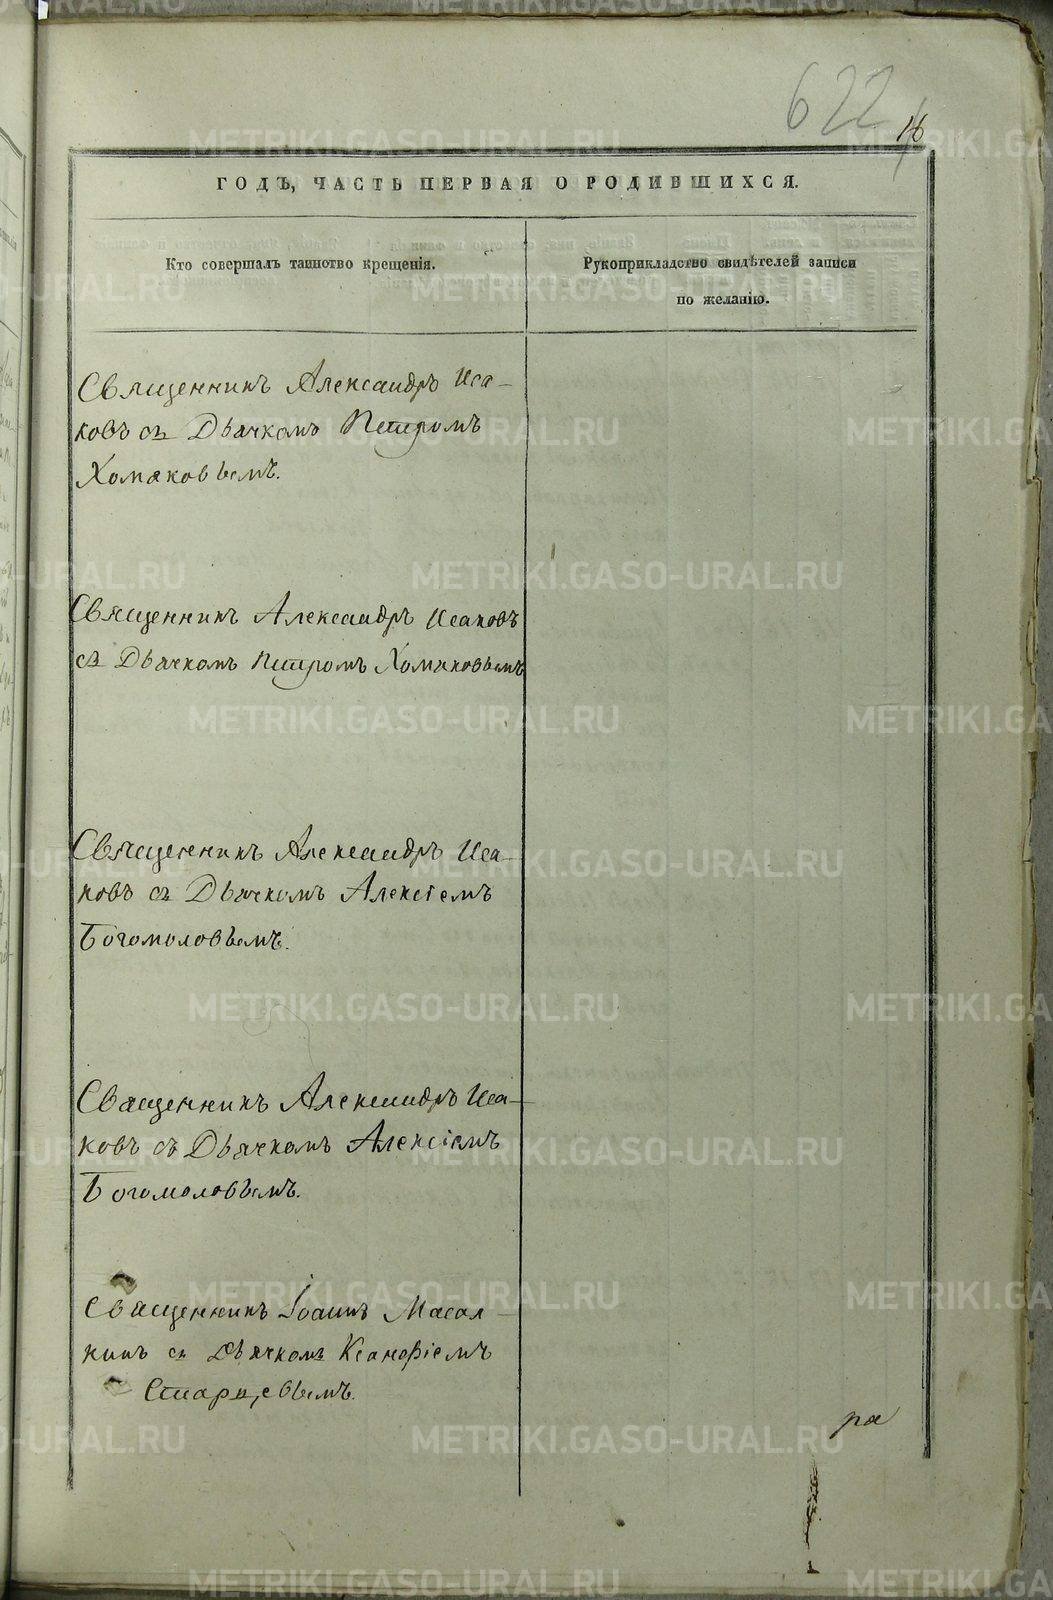 622
16
ГОДЪ, ЧАСТЬ ПЕРВАЯ О РОДИВШИХСЯ.
Кто совершалъ таинство крещенія.
Рукоприкладство свидѣтелей записи
по желанію.
Священникъ Александръ Иса-
ковъ съ Дьячкомъ Петромъ
Хомяковымъ.
Священникъ Александръ Исаковъ
съ Дьячкомъ Петромъ Хомяковымъ
Священникъ Александръ Иса-
ковъ съ Дьячкомъ Алексіемъ
Богомоловымъ.
Священникъ Александръ Иса-
ковъ съ Дьячкомъ Алексіемъ
Богомоловымъ.
Священникъ Іоаннъ Масал-
кинъ съ Дьячкомъ Ксанофіемъ
Старцевымъ.
ра
METRIKI.GASO-URAL.RU